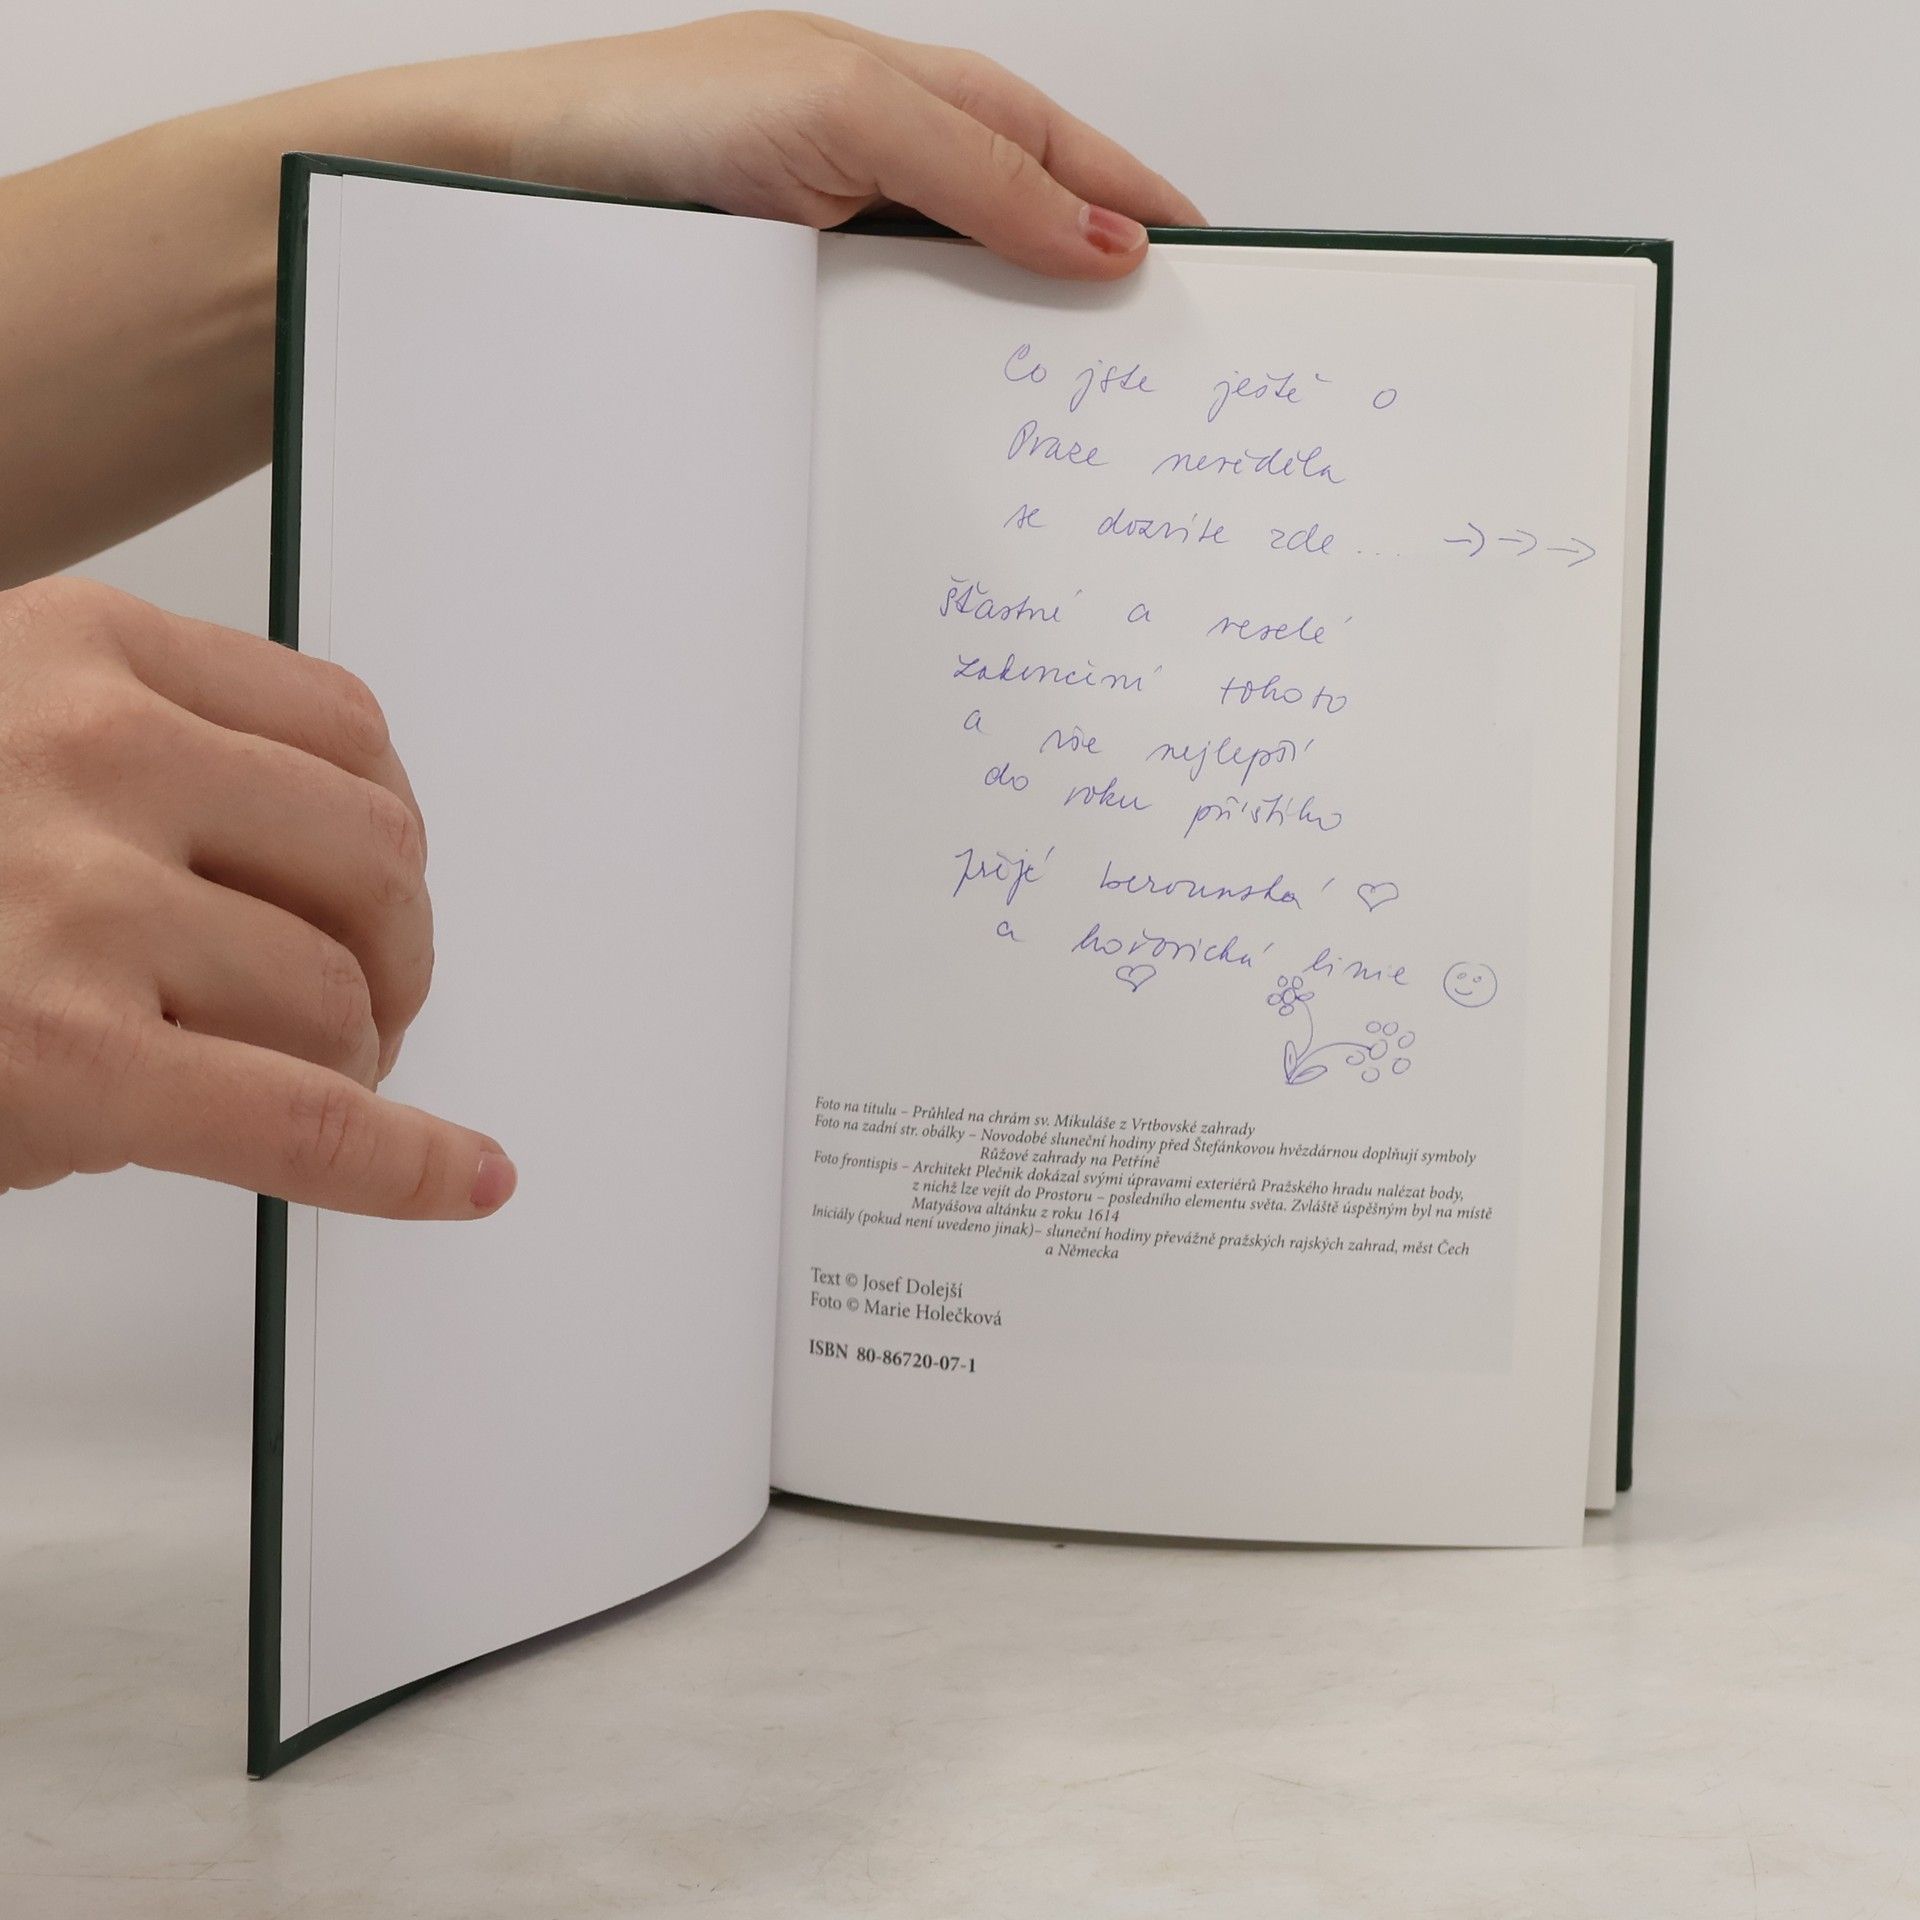 Co jste ještě o
Praze nevěděla
se dozvíte zde ... →→→
šťastné a veselé
zakončení tohoto
a vše nejlepší
do roku příštího
přejí berounská ♡
a hořovická linie ☺
♡
Foto na titulu – Průhled na chrám sv. Mikuláše z Vrtbovské zahrady
Foto na zadní str. obálky – Novodobé sluneční hodiny před Štefánkovou hvězdárnou doplňují symboly
Růžové zahrady na Petříně
Foto frontispis – Architekt Plečnik dokázal svými úpravami exteriérů Pražského hradu nalézat body,
z nichž lze vejít do Prostoru – posledního elementu světa. Zvláště úspěšným byl na místě
Matyášova altánku z roku 1614
Iniciály (pokud není uvedeno jinak)– sluneční hodiny převážně pražských rajských zahrad, měst Čech
a Německa
Text © Josef Dolejší
Foto © Marie Holečková
ISBN 80-86720-07-1